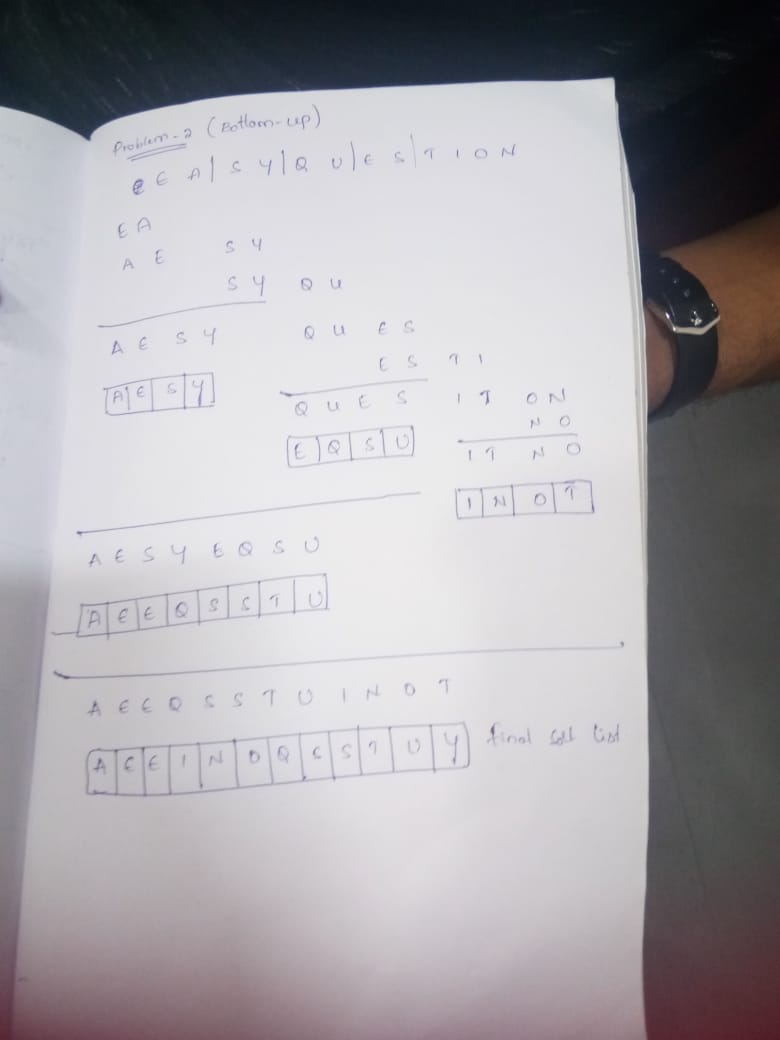 Problem-2 (Bottom-up)
E A | S Y | Q U | E S | T I O N
E A
A E S Y
S Y Q U
A E S Y Q U E S
E S T I
A E S Y
Q U E S I T O N
N O
E Q S U
I T N O
I N O T
A E S Y E Q S U
A E E Q S S T U
A E E Q S S T U I N O T
A E E I N O Q S S T U Y final list